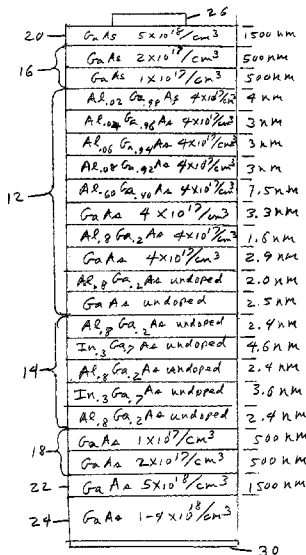 26
20 GaAs 5x10¹⁸/cm³ 1500nm
16
GaAs 2x10¹⁷/cm³ 500nm
GaAs 1x10¹⁷/cm³ 500nm
12
Al.02 Ga.98 As 4x10¹⁷/cm³ 4 nm
Al.04 Ga.96 As 4x10¹⁷/cm³ 3 nm
Al.06 Ga.94 As 4x10¹⁷/cm³ 3 nm
Al.08 Ga.92 As 4x10¹⁷/cm³ 3 nm
Al.60 Ga.40 As 4x10¹⁷/cm³ 7.5 nm
GaAs 4x10¹⁷/cm³ 3.3 nm
Al.8 Ga.2 As 4x10¹⁷/cm³ 1.6 nm
GaAs 4x10¹⁷/cm³ 2.9 nm
Al.8 Ga.2 As undoped 2.0 nm
GaAs undoped 2.5 nm
14
Al.8 Ga.2 As undoped 2.4 nm
In.3 Ga.7 As undoped 4.6 nm
Al.8 Ga.2 As undoped 2.4 nm
In.3 Ga.7 As undoped 3.6 nm
Al.8 Ga.2 As undoped 2.4 nm
18
GaAs 1x10¹⁷/cm³ 500 nm
GaAs 2x10¹⁷/cm³ 500 nm
22 GaAs 5x10¹⁸/cm³ 1500 nm
24 GaAs 1-4x10¹⁸/cm³
30